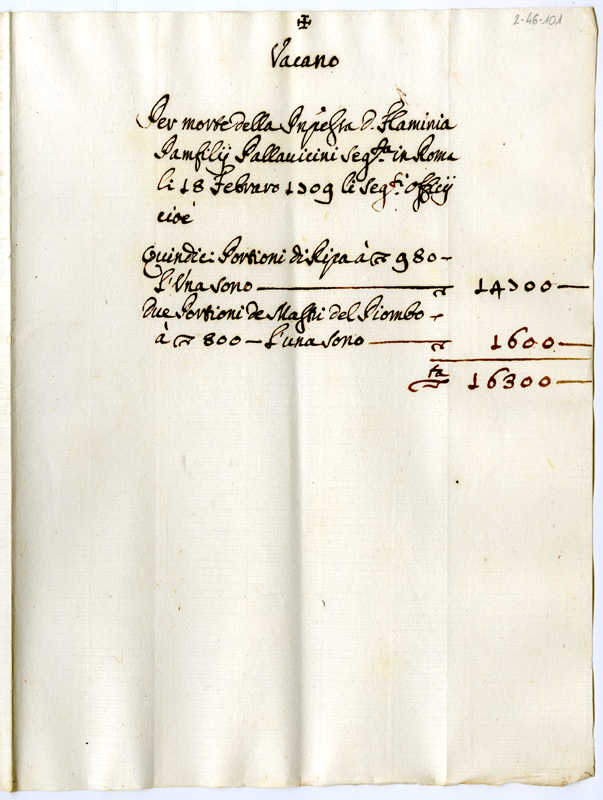 ✠
2-46-101
Vacano
Per morte della Pnp̃essa D. Flaminia
Pamfilij Pallauicini seg.ta in Roma
li 18 Febraro 1709 li seg.ti offitij
cioè
Quindici Portioni di Ripa à ▽ 980 –
l'Una sono — ▽ 14700 —
due Portioni de Mastri del Piombo –
à ▽ 800 – l'una sono — ▽ 1600 —
▽ta 16300 —